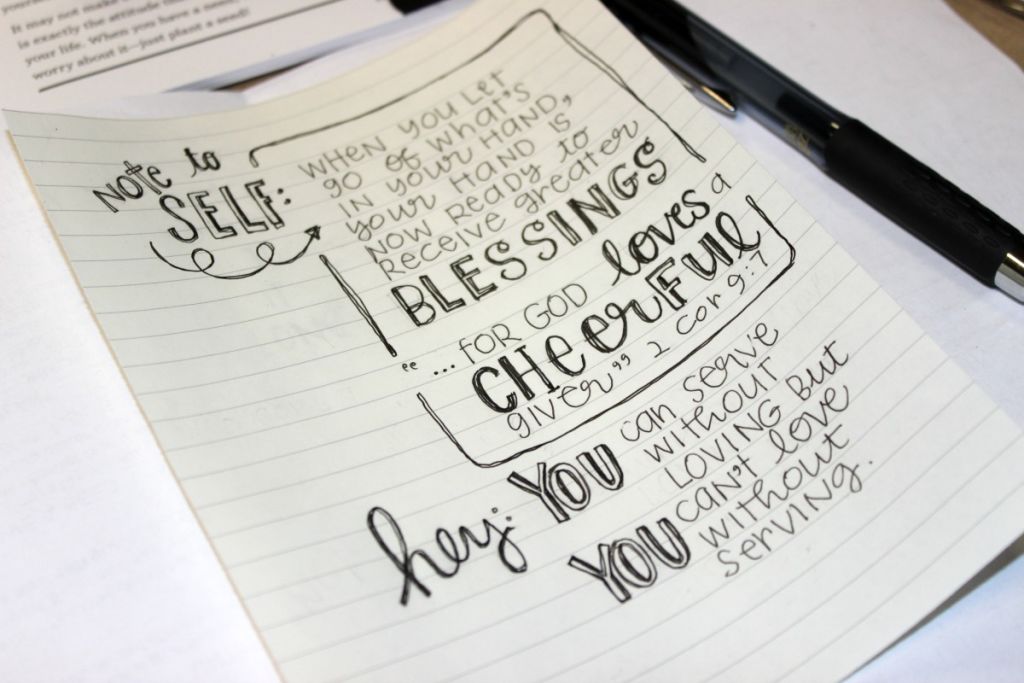 It may not make
is exactly the attitude
your life. When you have a need,
worry about it—just plant a seed!
NOTE to
SELF:
WHEN YOU LET
GO OF WHAT'S
IN YOUR HAND,
YOUR HAND IS
NOW READY to
RECEIVE greater
BLESSINGS
"... FOR GOD loves a
CHEERFUL
giver" 2 Cor 9:7
hey: YOU can serve
without
LOVING but
YOU can't love
without
serving.